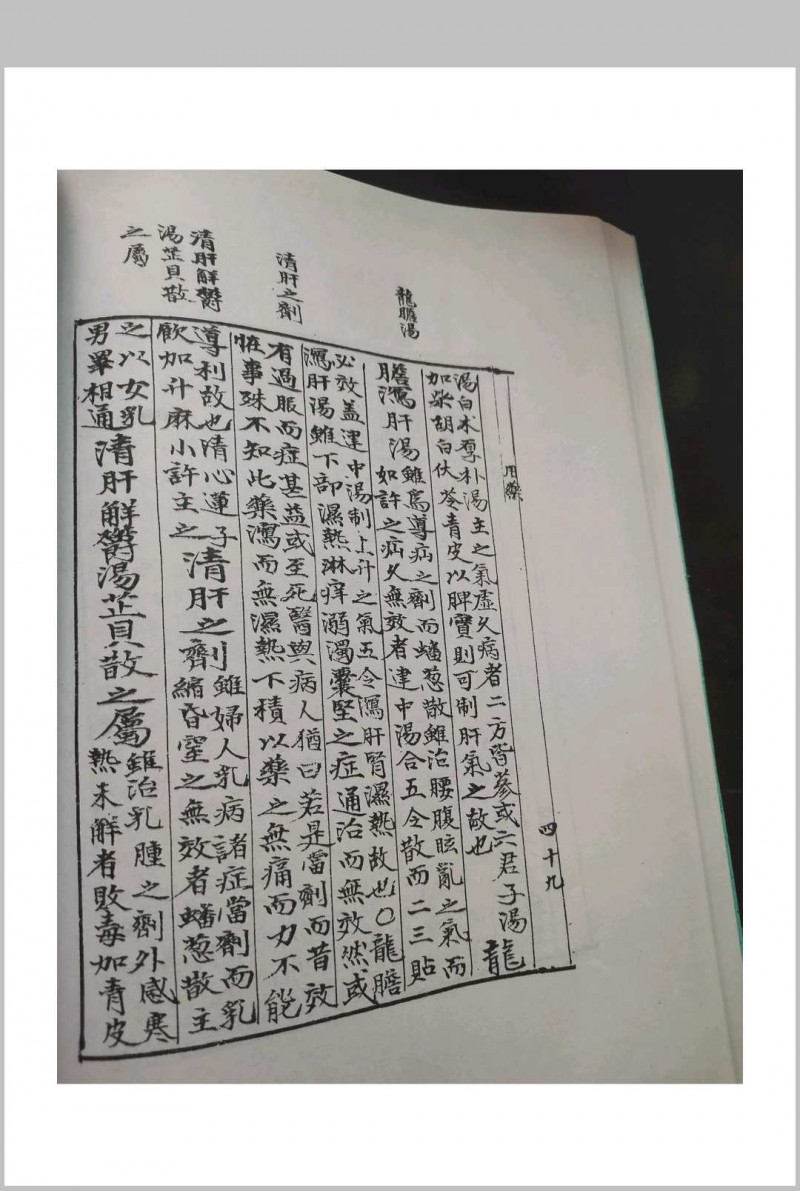 用藥 四十九
龍膽湯
湯白朮厚朴湯主之氣虛久病者二方皆蔘或六君子湯
加柴胡白伏苓青皮以脾實則可制肝氣之故也
龍
膽瀉肝湯
雖爲導病之劑而蟠葱散雖治腰腹眩亂之氣而
如許之病久無效者建中湯合五令散而二三貼
必效盖建中湯制上汁之氣五令瀉肝腎濕熱故也〇龍膽
瀉肝湯雖下部濕熱淋痒溺濁囊堅之症通治而無效然或
清肝之劑
有過服而症甚益或至死醫與病人猶曰若是當劑而昔效
恠事殊不知此藥瀉而無濕熱下積以藥之無痛而力不能
清肝解鬱
湯芷貝散
之屬
導利故也清心蓮子
飮加升麻小許主之
清肝之劑
雖婦人乳病諸症當劑而乳
縮昏窒之無效者蟠葱散主
之以女乳
男睪相通
清肝解鬱湯芷貝散之屬
雖治乳腫之劑外感寒
熱未解者敗毒加青皮